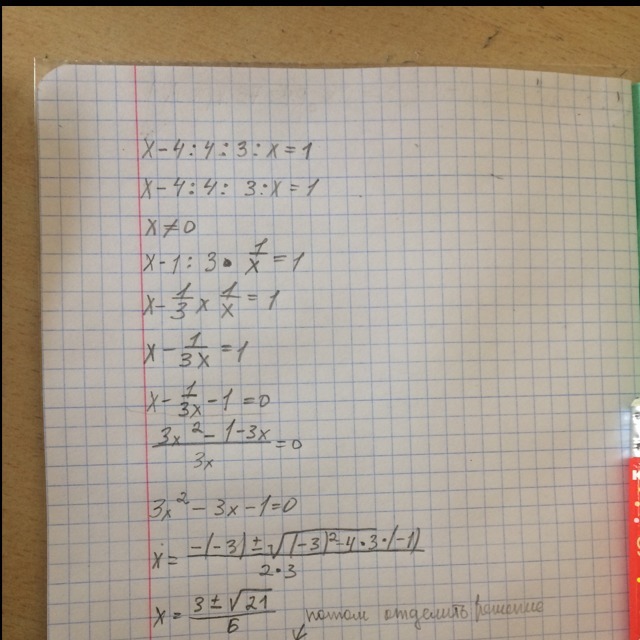 x-4:4:3:x=1
x-4:4: 3:x=1
x≠0
x-1: 3•1/x=1
x-1/3 x 1/x=1
x-1/3x=1
x-1/3x-1=0
3x²-1-3x/3x=0
3x²-3x-1=0
x=-(-3)±√(-3)²-4•3•(-1)/2•3
x=3±√21/6
потом отделить решение